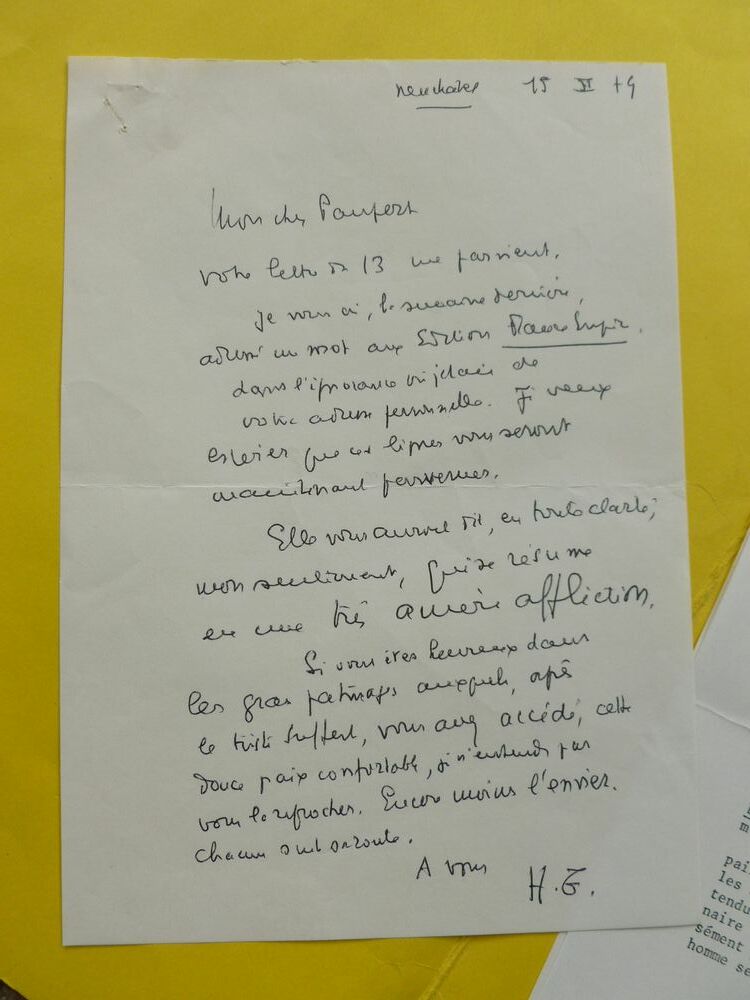 15 XI 74
Mon cher Paupert
votre lettre du 13 me parvient.
Je vous ai, la semaine dernière,
adressé un mot aux Editions
dans l'ignorance où j'étais de
votre adresse personnelle. Je veux
espérer que ces lignes vous seront
maintenant parvenues.
Elle vous auront dit, en toute clarté,
mon sentiment, qui se résume
en une très amère affliction.
Si vous êtes heureux dans
les gras pâturages auxquels, après
le triste Suffert, vous avez accédé, cette
douce paix confortable, je n'entends pas
vous la reprocher. Encore moins l'envier.
Chacun suit sa route.
A vous
pai
les
tendu
naire
sément
homme se